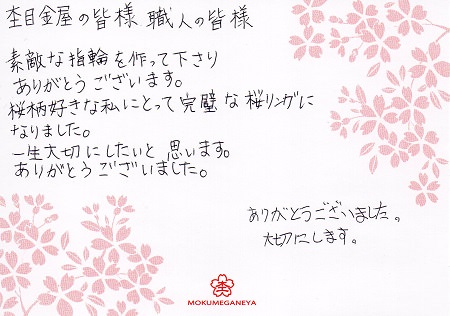 杢目金屋の皆様 職人の皆様
素敵な指輪を作って下さり
ありがとうございます。
桜柄好きな私にとって完璧な桜リングに
なりました。
一生大切にしたいと思います。
ありがとうございました。
ありがとうございました。
大切にします。
杢
MOKUMEGANEYA